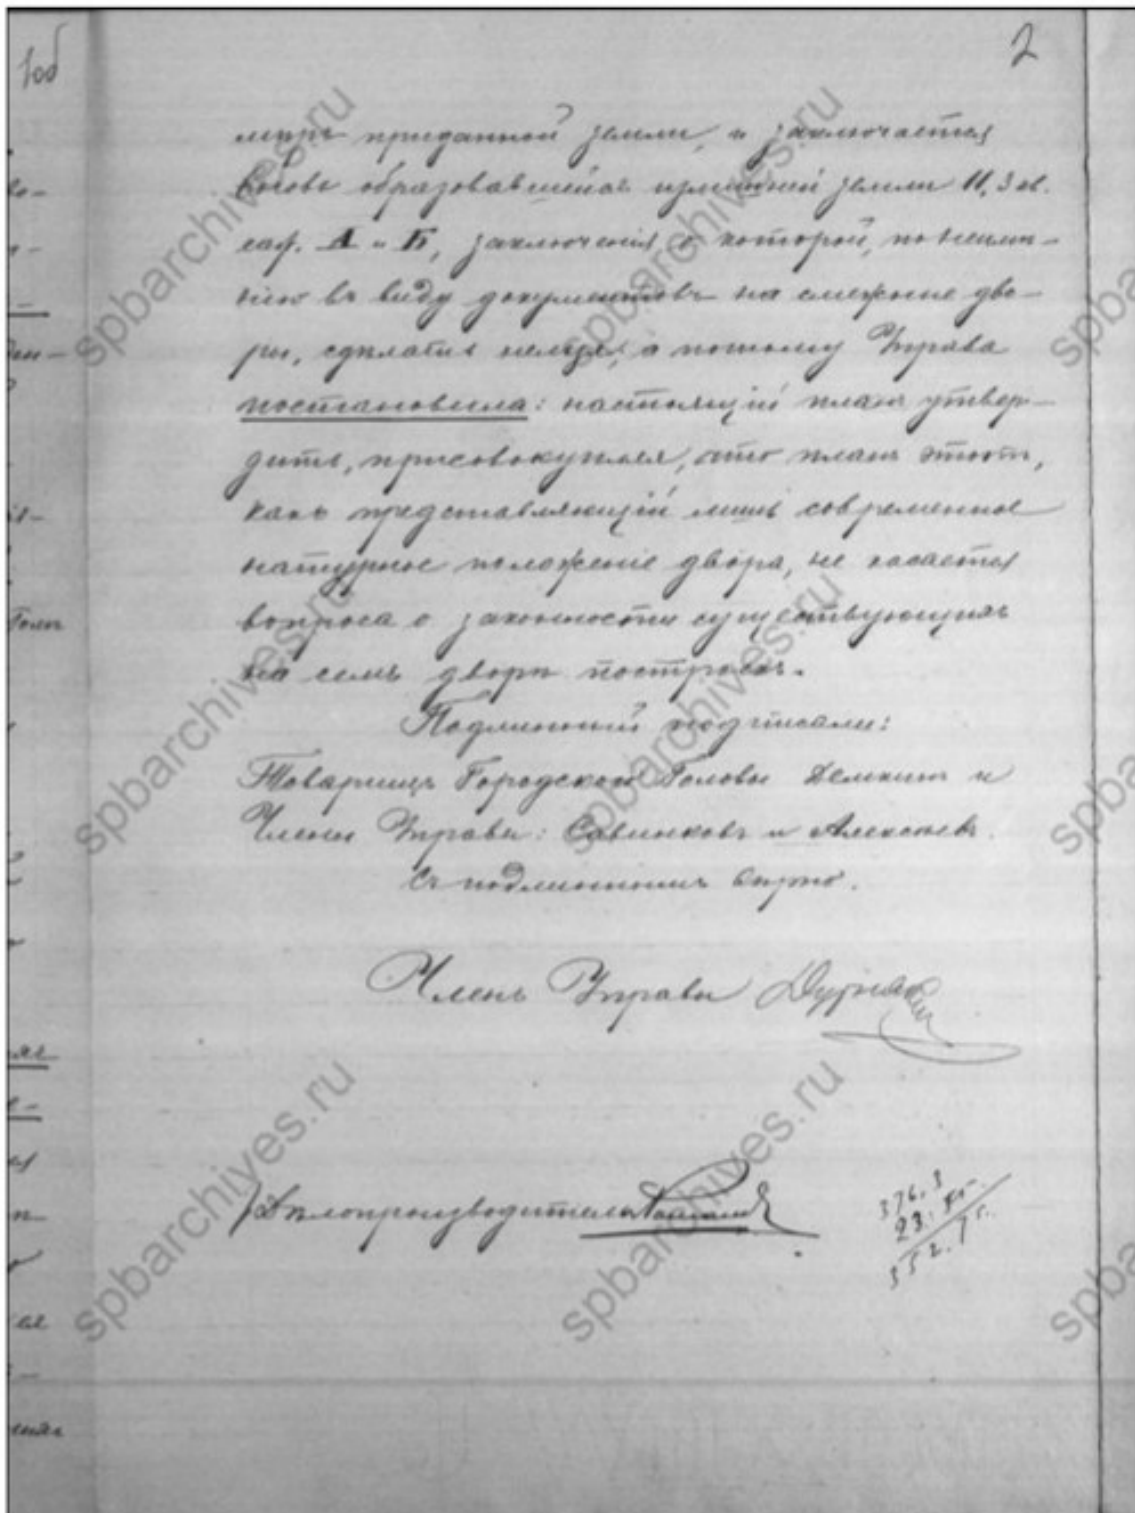 1об
2
мѣрѣ приданной земли, и заключается
образовавшейся излишней земли 11,3 кв.
саж. А и Б, заключенія о которой, по неимѣ-
нію въ виду документовъ на смежные дво-
ры, сдѣлать нельзя, а потому Управа
постановила: настоящій планъ утвер-
дить, присовокупляя, что планъ этотъ,
какъ представляющій лишь современное
натурное положеніе двора, не касается
вопроса о законности существующихъ
на семъ дворѣ построекъ.
Подлинный подписали:
Товарищъ Городского Головы Демкинъ и
Члены Управы: Савинковъ и Алексѣевъ.
Съ подлиннымъ вѣрно.
Членъ Управы
Дѣлопроизводитель
376.3
352.7
spbarchives.ru
spbarchives.ru
spbarchives.ru
spbarchives.ru
spbarchives.ru
spbarchives.ru